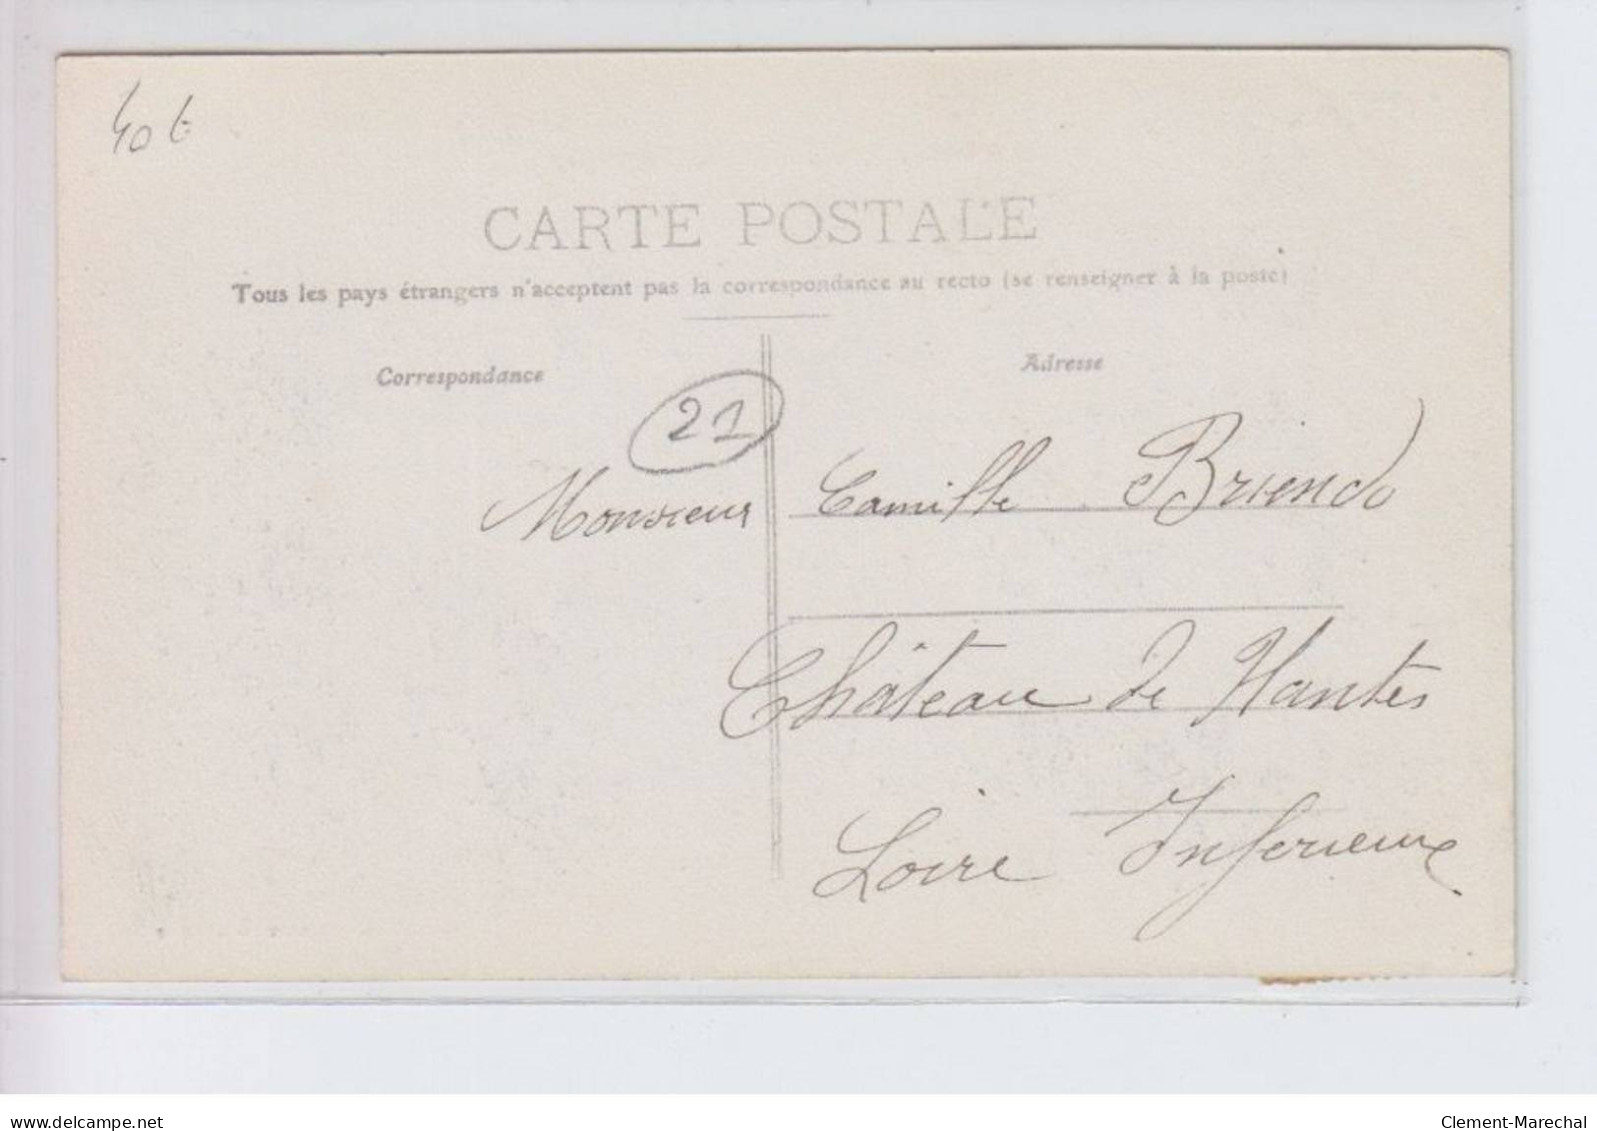 40 t
CARTE POSTALE
Tous les pays étrangers n'acceptent pas la correspondance au recto (se renseigner à la poste)
Correspondance
Adresse
21
Monsieur Camille Briend
Château de Nantes
Loire Inferieure
www.delcampe.net
Clement-Marechal